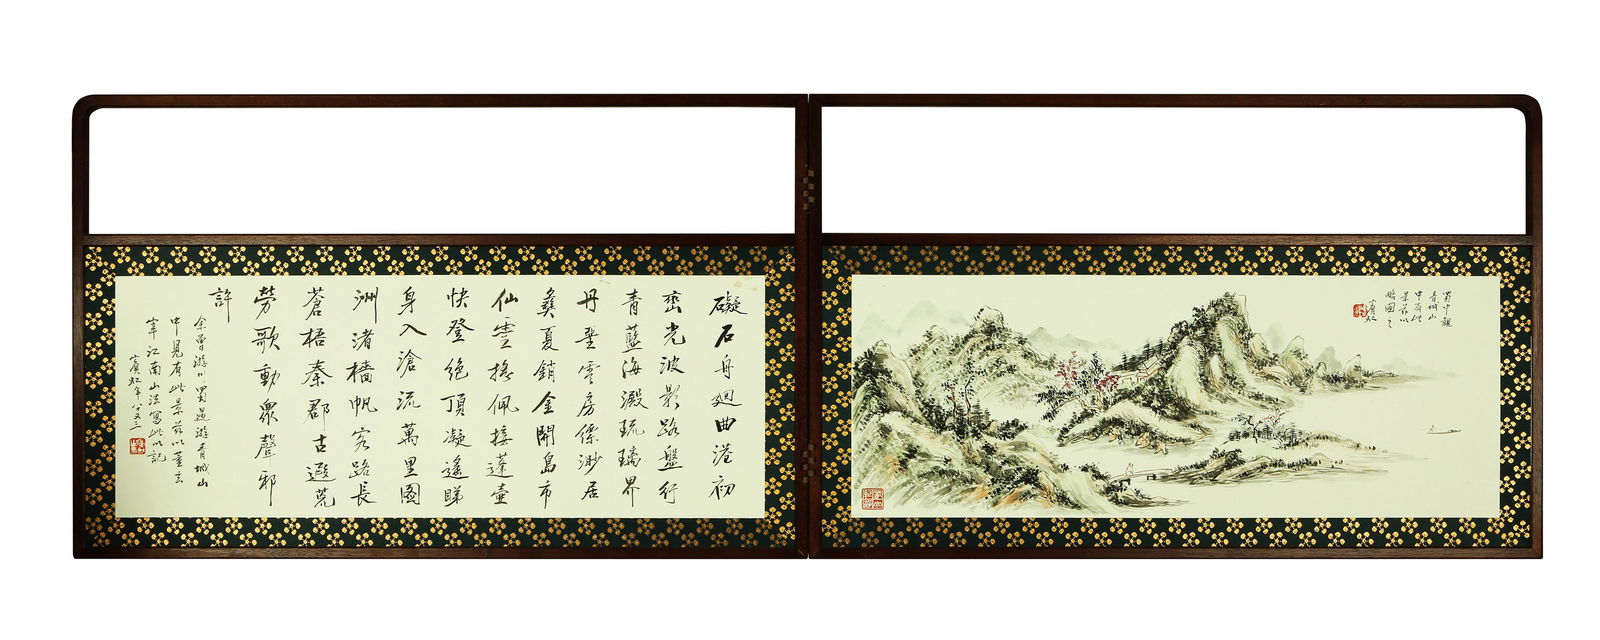 礙石舟廻曲港初
峦光波影路盤行
青藍海澱琉璃界
丹堊雲房縹渺居
彝夏銷金開島市
仙靈搖佩接蓬壺
快登絕頂凝遙睇
身入滄流萬里圖
洲渚檣帆客路長
蒼梧秦郡古遐荒
勞歌動衆聲邪
許
余曾游川蜀過游青城山
中見有此景茲以董玄
宰江南山法寫此以記
賓虹年八十又三
蜀中觀
青城山
中有此
景茲以
略圖之
賓虹